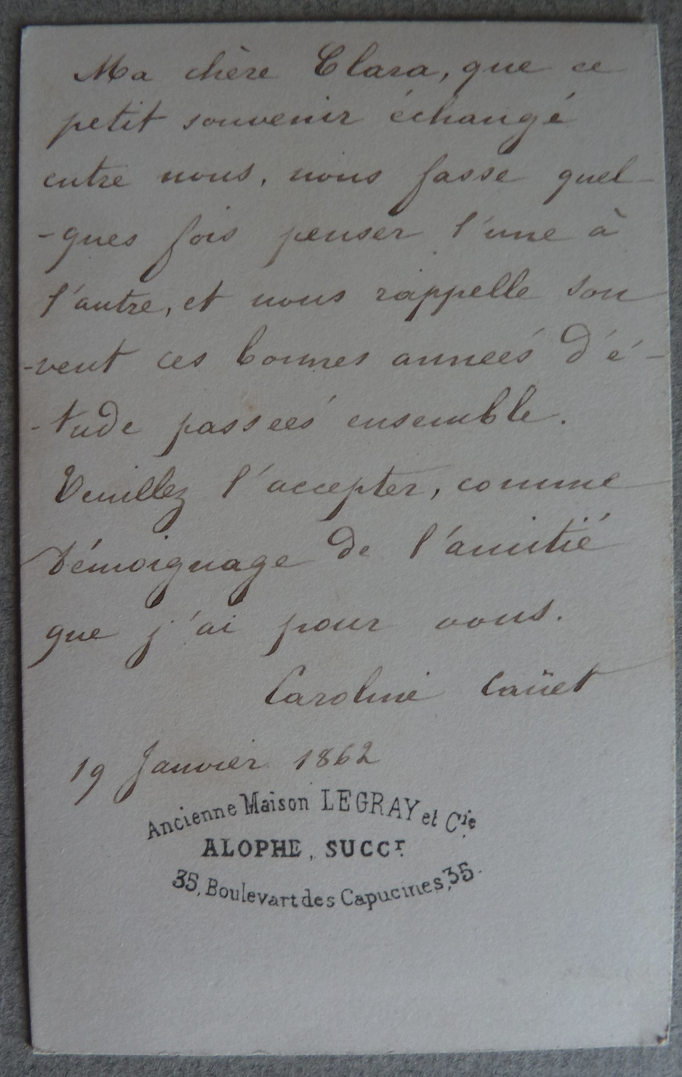 Ma chère Clara, que ce
petit souvenir échangé
entre nous, nous fasse quel
-ques fois penser l'une à
l'autre, et nous rappelle sou
-vent ces bonnes années d'é-
-tude passées ensemble.
Veuillez l'accepter, comme
témoignage de l'amitié
que j'ai pour vous.
Caroline Caüet
19 Janvier 1862
Ancienne Maison LEGRAY et Cie.
ALOPHE, SUCCR.
35, Boulevart des Capucines, 35.